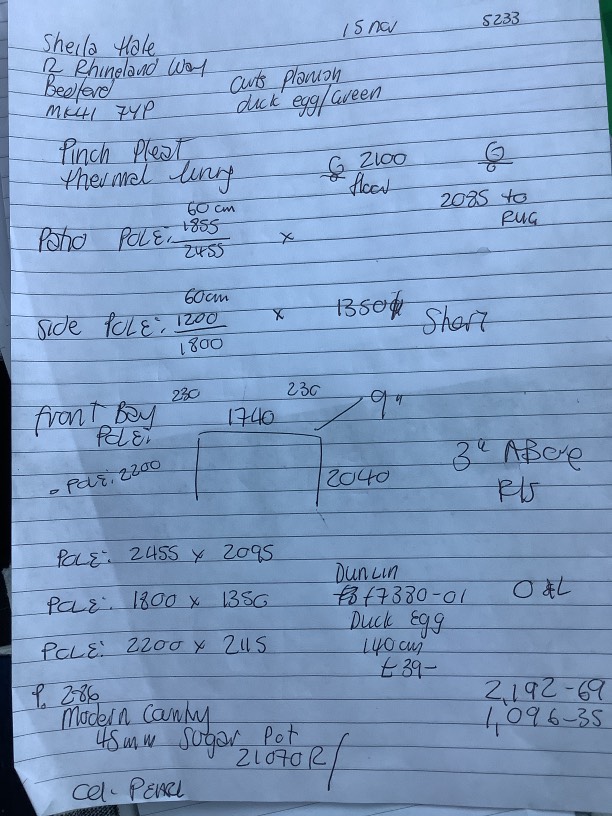 15 nov 5233
Sheila Hale
12 Rhineland Way
Bedford
MK41 7YP
duck egg/Green
Pinch Pleat
thermal lining
G 2100 G
floor
2085 to
RUG
60cm
Patio POLE: 1855 x
2455
60cm
side POLE: 1200 x 1350 Short
1800
230 230 9"
front Bay 1740
POLE:
POLE: 2200 2040
3" ABOVE
POLE: 2455 x 2095
Dunlin
POLE: 1800 x 1350 f7380-01
Duck Egg
POLE: 2200 x 2115 140cm
£39-
P. 286 2,192-69
Modern Country 1,096-35
45mm Sugar Pot
21070R/
Col- PEARL